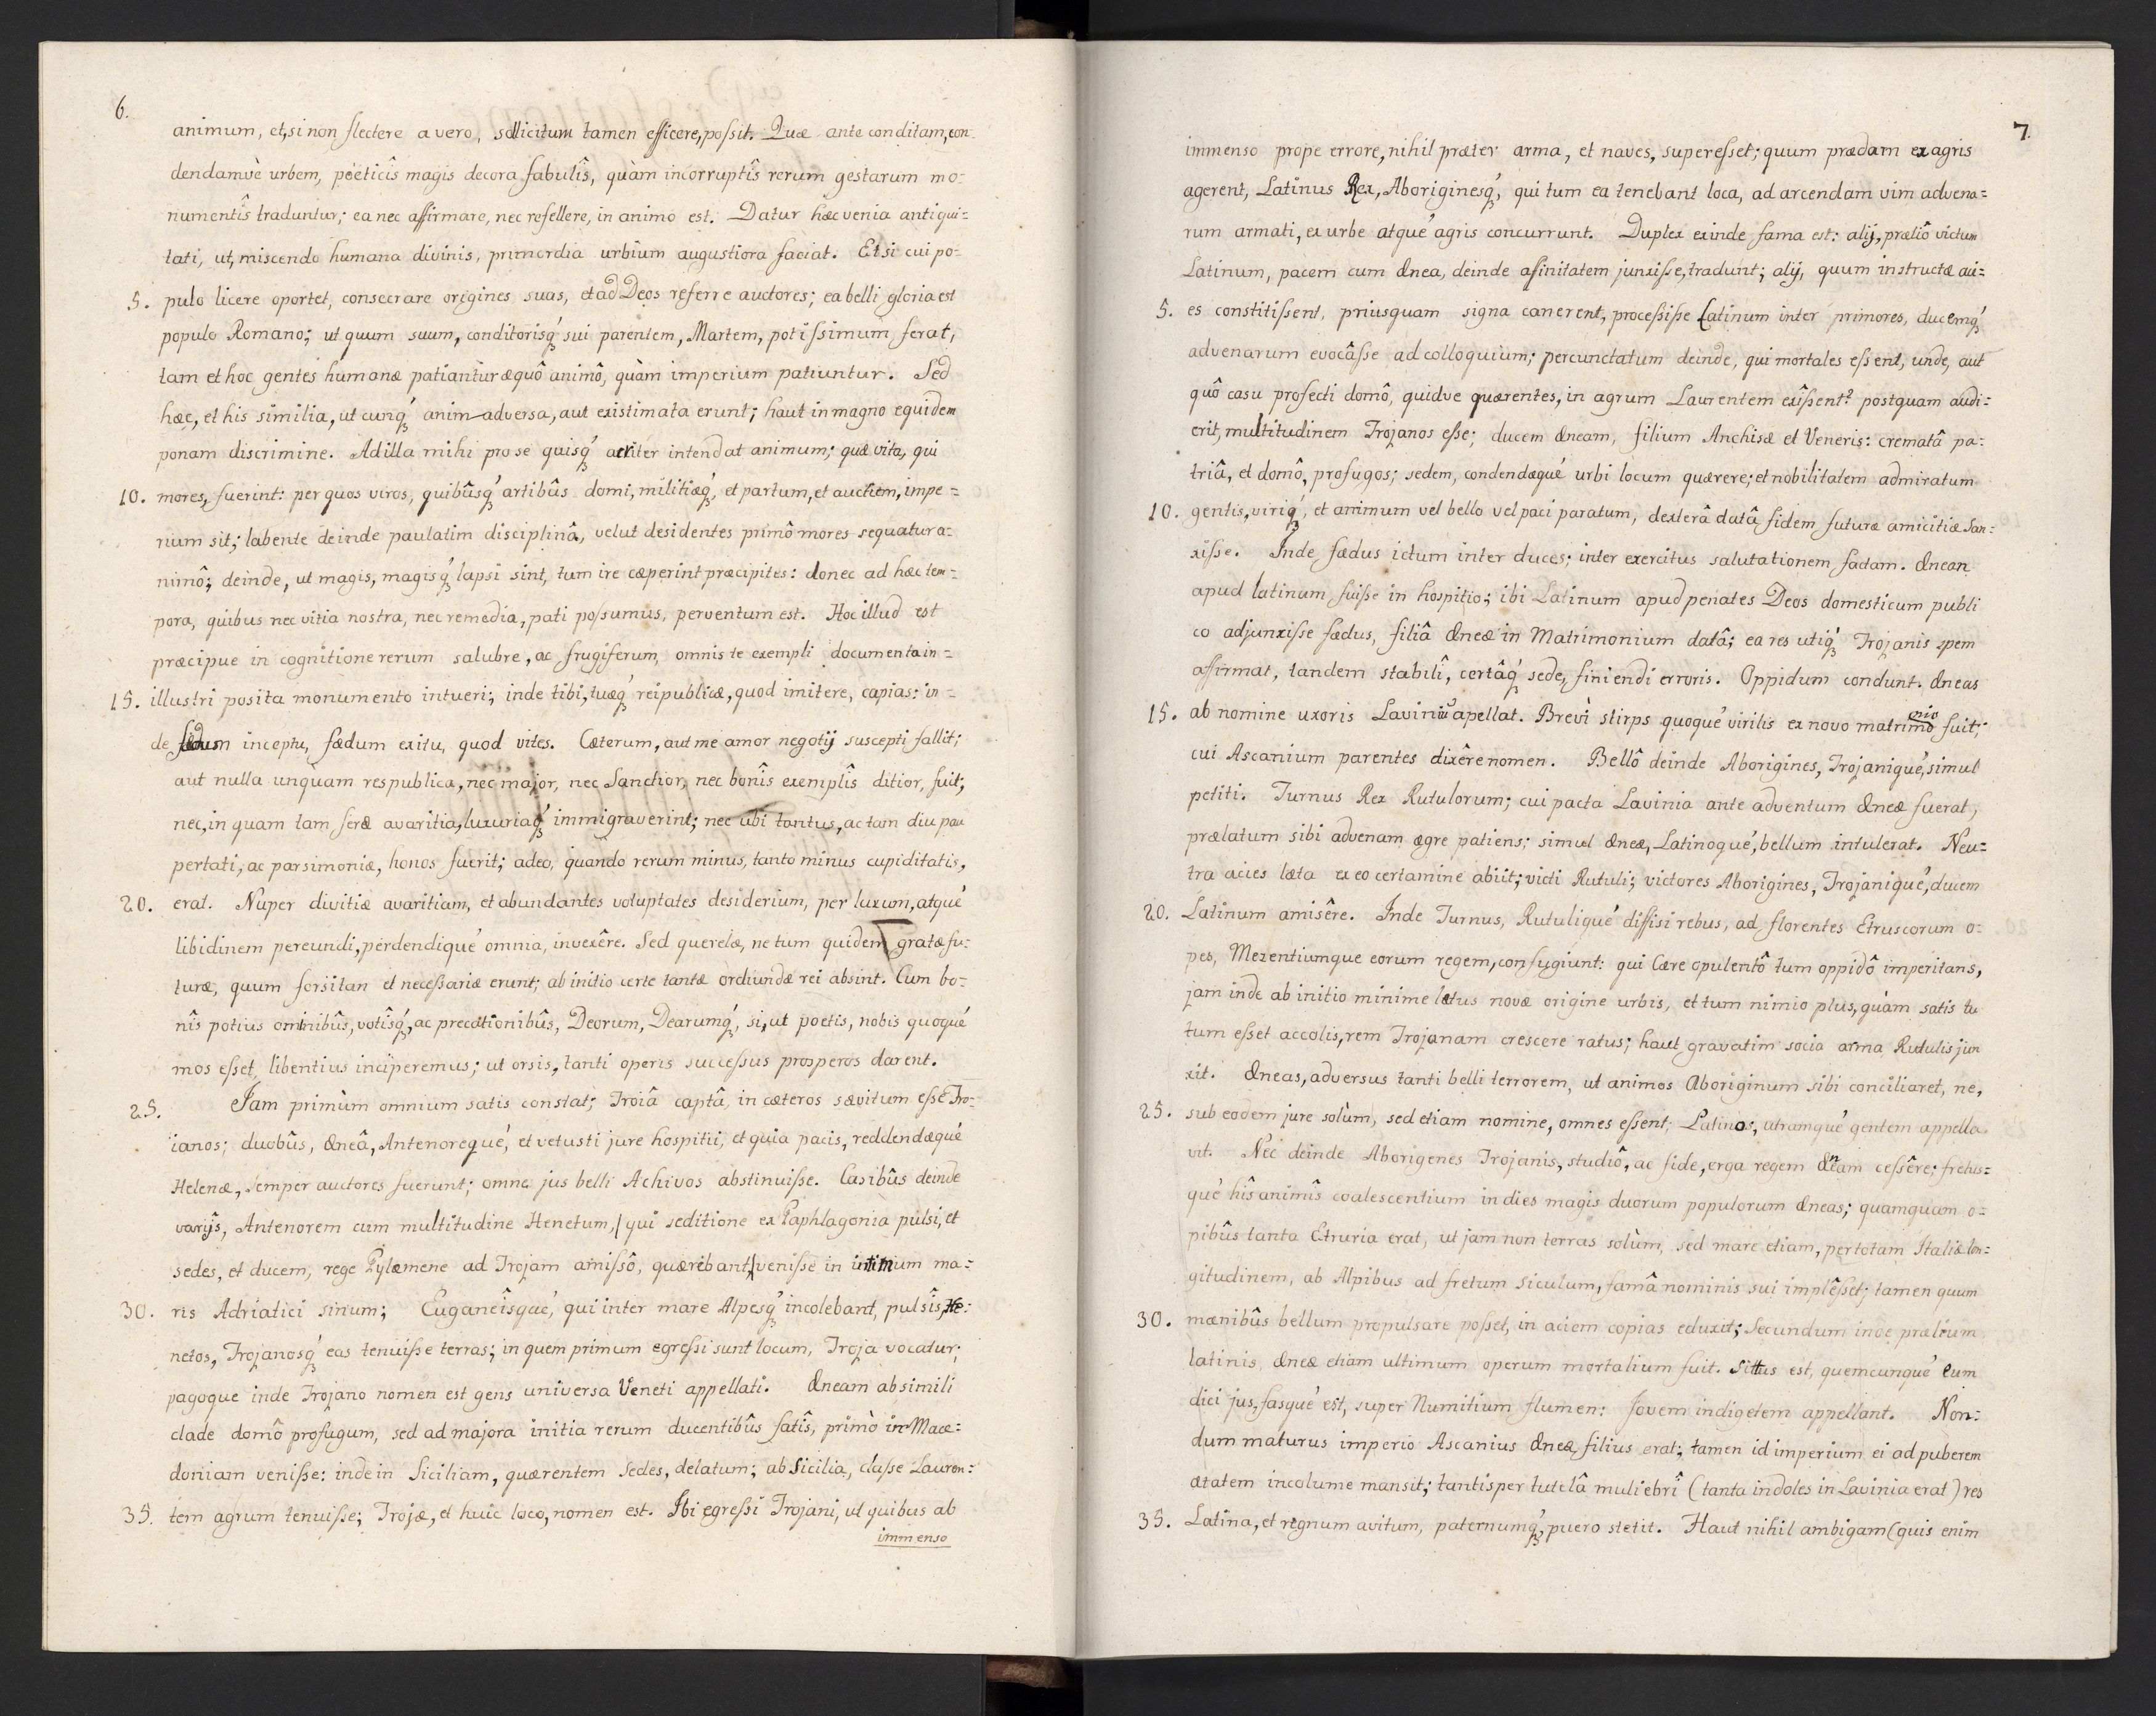 6.
animum, et, si non flectere a vero, sollicitum tamen efficere, poſsit. Quæ ante conditam, con-
dendamvè urbem, pöeticîs magis decora fabulîs, quàm incorruptîs rerum gestarum mo:
numentîs traduntur; ea nec affirmare, nec refellere, in animo est. Datur hæc venia antiqui=
tati, ut, miscendo humana divinis, primordia urbium augustiora faciat. Et si cui po=
5. pulo licere oportet, consecrare origines suas, et ad Deos referre auctores; ea belli gloria est
populo Romano; ut quum suum, conditorisq́ꝫ sui parentem, Martem, potiſsimum ferat,
tam et hoc gentes humanæ patiantur æquô animô, quàm imperium patiuntur. Sed
hæc, et his similia, ut cunq́ꝫ animadversa, aut existimata erunt; haut in magno equidem
ponam discrimine. Ad illa mihi pro se quisq́ꝫ acriter intendat animum; quæ vita, qui
10. mores, fuerint: per quos viros, quibûsq́ꝫ artibûs domi, militiæq́ꝫ, et partum, et auctum, impe=
rium sit; labente deinde paulatim disciplinâ, velut desidentes primô mores sequatur a=
nimô; deinde, ut magis, magisq́ꝫ lapsi sint, tum ire cæperint præcipites: donec ad hæc tem=
pora, quibus nec vitia nostra, nec remedia, pati poſsumus, perventum est. Hoc illud est
præcipue in cognitione rerum salubre, ac frugiferum, omnis te exempli documenta in=
15. illustri posita monumento intueri; inde tibi, tuæq́ꝫ reipublicæ, quod imitere, capias: in=
de fædum inceptu, fædum exitu, quod vites. Cæterum, aut me amor negotij suscepti fallit;
aut nulla unquam respublica, nec major, nec Sanctior, nec bonîs exemplîs ditior, fuit;
nec, in quam tam seræ avaritia, luxuriaq́ꝫ immigraverint; nec ubi tantus, ac tam diu pau
pertati, ac parsimoniæ, honos fuerit; adeo, quando rerum minus, tanto minus cupiditatis,
20. erat. Nuper divitiæ avaritiam, et abundantes voluptates desiderium, per luxum, atqué
libidinem pereundi, perdendiqué omnia, invexêre. Sed querelæ, ne tum quidem gratæ fu=
turæ, quum forsitan et neceſsariæ erunt; ab initio certe tantæ ordiundæ rei absint. Cum bo=
nîs potius ominibûs, votîsq́ꝫ, ac precationibûs, Deorum, Dearumq́ꝫ, si, ut poetis, nobis quoqué
mos eſset, libentius inciperemus; ut orsis, tanti operis succeſsus prosperos darent.
25. Jam primùm omnium satis constat; Troiâ captâ, in cæteros sævitum eſse Tro=
ianos; duobûs, Æneâ, Antenorequé, et vetusti jure hospitii, et quia pacis, reddendæqué
Helenæ, semper auctores fuerunt; omne jus belli Achivos abstinuiſse. Casibûs deinde
varijs, Antenorem cum multitudine Henetum, qui seditione ex Paphlagonia pulsi, et
sedes, et ducem, rege Pylæmene ad Trojam amiſsô, quæribant, veniſse in intimum ma=
30. ris Adriatici sinum; Euganeîsqué, qui inter mare Alpesq́ꝫ incolebant, pulsîs, He=
netos, Trojanosq́ꝫ eas tenuiſse terras; in quem primum egreſsi sunt locum, Troja vocatur;
pagoque inde Trojano nomen est gens universa Veneti appellati. Æneam ab simili
clade domô profugum, sed ad majora initia rerum ducentibûs fatîs, primò in Mace=
doniam veniſse: inde in Siciliam, quærentem Sedes, delatum; ab Sicilia, claſse Lauren=
35. tem agrum tenuiſse; Trojæ, et huic loco, nomen est. Ibi egreſsi Trojani, ut quibus ab
immenso
7.
immenso prope errore, nihil præter arma, et naves, supereſset; quum prædam ex agris
agerent, Latinus Rex, Aboriginesq́ꝫ, qui tum ea tenebant loca, ad arcendam vim advena=
rum armati, ex urbe atqué agris concurrunt. Duplex exinde fama est: alij, præliô victum
Latinum, pacem cum Ænea, deinde afinitatem junxiſse, tradunt; alij, quum instructæ aci=
5. es constitiſsent, priusquam signa canerent, proceſsiſse Latinum inter primores, ducemq́ꝫ
advenarum evocâſse ad colloquium; percunctatum deinde, qui mortales eſsent, unde, aut
quô casu profecti domô, quidve quærentes, in agrum Laurentem exîſsent? postquam audi=
erit, multitudinem Trojanos eſse; ducem Æneam, filium Anchisæ et Veneris: crematâ pa=
triâ, et domô, profugos; sedem, condendæqué urbi locum quærere; et nobilitatem admiratum
10. gentis, viriq́ꝫ, et animum vel bello vel paci paratum, dexterâ datâ fidem futuræ amicitiæ San=
xiſse. Inde fædus ictum inter duces; inter exercitus salutationem factam. Ænean
apud latinum fuiſse in hospitio; ibi Latinum apud penates Deos domesticum publi
co adjunxiſse fædus, filiâ Æneæ in Matrimonium datâ; ea res utiq́ꝫ Trojanis spem
affirmat, tandem stabilî, certâq́ꝫ sede, finiendi erroris. Oppidum condunt. Æneas
15. ab nomine uxoris Lavinium apellat. Brevì stirps quoqué virilis ex novo matrimonio fuit;
cui Ascanium parentes dixêre nomen. Bellô deinde Aborigines, Trojaniqué, simul
petiti. Turnus Rex Rutulorum; cui pacta Lavinia ante adventum Æneæ fuerat,
prælatum sibi advenam ægre patiens; simul Æneæ, Latinoqué, bellum intulerat. Neu=
tra acies læta ex eo certamine abiit; victi Rutuli; victores Aborigines, Trojaniqué, ducem
20. Latinum amisêre. Inde Turnus, Rutuliqué diffisi rebus, ad florentes Etruscorum o=
pes, Mezentiumque eorum regem, confugiunt: qui Cære opulentô tum oppidô imperitans,
jam inde ab initio minime lætus novæ origine urbis, et tum nimio plus, quàm satis tu
tum esset accolis, rem Trojanam crescere ratus; haut gravatim socia arma Rutulis jun
xit. Æneas, adversus tanti belli terrorem, ut animos Aboriginum sibi conciliaret, ne,
25. sub eodem jure solùm, sed etiam nomine, omnes eſsent; Latinos, utramqué gentem appella
vit. Nec deinde Aborigenes Trojanis, studiô, ac fide, erga regem Æneam ceſsêre; fretus=
qué hîs animîs coalescentium in dies magis duorum populorum Æneas; quamquam o=
pibûs tanta Etruria erat, ut jam non terras solùm, sed mare etiam, per totam Italiæ lon=
gitudinem, ab Alpibus ad fretum Siculum, famâ nominis sui implêſset; tamen quum
30. mænibûs bellum propulsare poſset, in aciem copias eduxit; Secundum inde prælium
latinis, Æneæ etiam ultimum operum mortalium fuit. Situs est, quemcunqué eum
dici jus, fasqué est, super Numitium flumen: Jovem indigetem appellant. Non=
dum maturus imperio Ascanius Æneæ, filius erat; tamen id imperium ei ad puberem
ætatem incolume mansit; tantisper tutelâ muliebrî (tanta indoles in Lavinia erat) res
35. Latina, et regnum avitum, paternumq́ꝫ, puero stetit. Haut nihil ambigam (quis enim